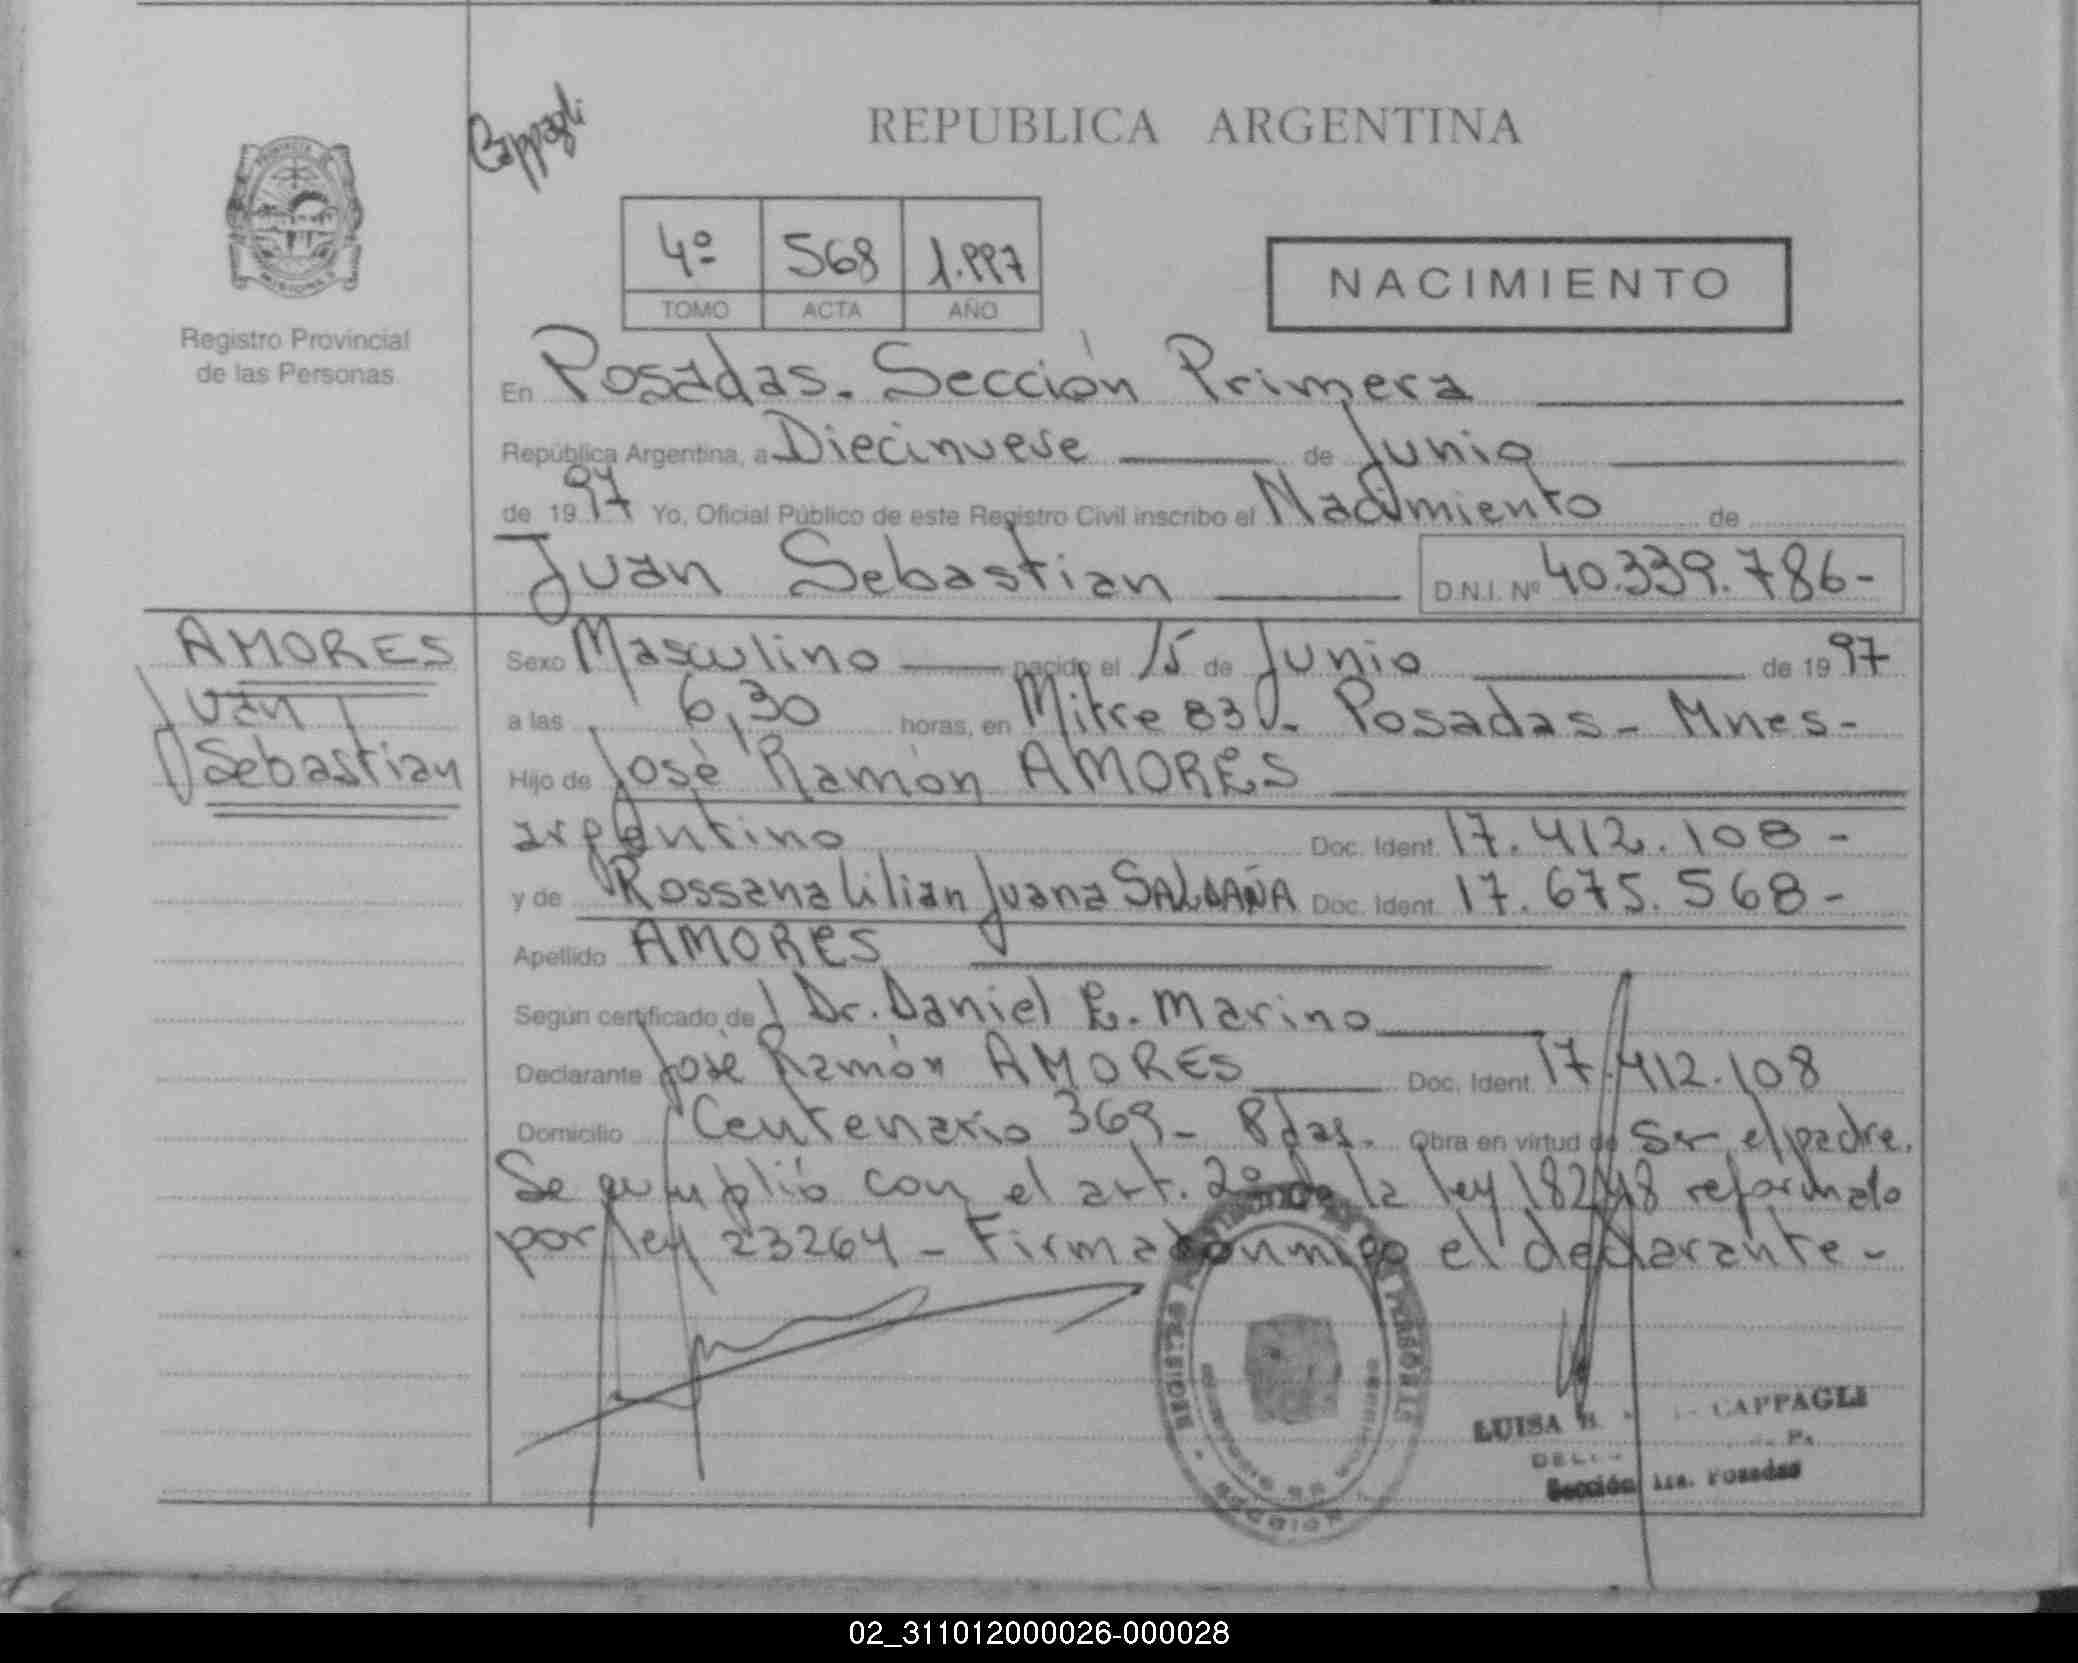 Cappagli
REPUBLICA ARGENTINA
PROVINCIA DE
MISIONES
4º 568 1.997
TOMO ACTA AÑO
NACIMIENTO
Registro Provincial
de las Personas
En Posadas. Sección Primera
República Argentina, a Diecinueve de Junio
de 1997 Yo, Oficial Público de este Registro Civil inscribo el Nacimiento de
Juan Sebastian D.N.I. Nº 40.339.786-
AMORES
Juan
Sebastian
Sexo Masculino nacido el 15 de Junio de 1997
a las 6,30 horas, en Mitre 830- Posadas - Mnes-
Hijo de José Ramón AMORES
argentino Doc. Ident. 17.412.108-
y de Rossana Lilian Juana SALDAÑA Doc. Ident. 17.675.568-
Apellido AMORES
Según certificado de Dr. Daniel E. Marino
Declarante José Ramón AMORES Doc. Ident. 17.412.108
Domicilio Centenario 369- Pdas. Obra en virtud de Ser el padre.
Se cumplió con el art. 2º de la ley 18248 reformado
por ley 23264 - Firma conmigo el declarante-
LUISA CAPPAGLI
Sección 1ra. Posadas
02_311012000026-000028